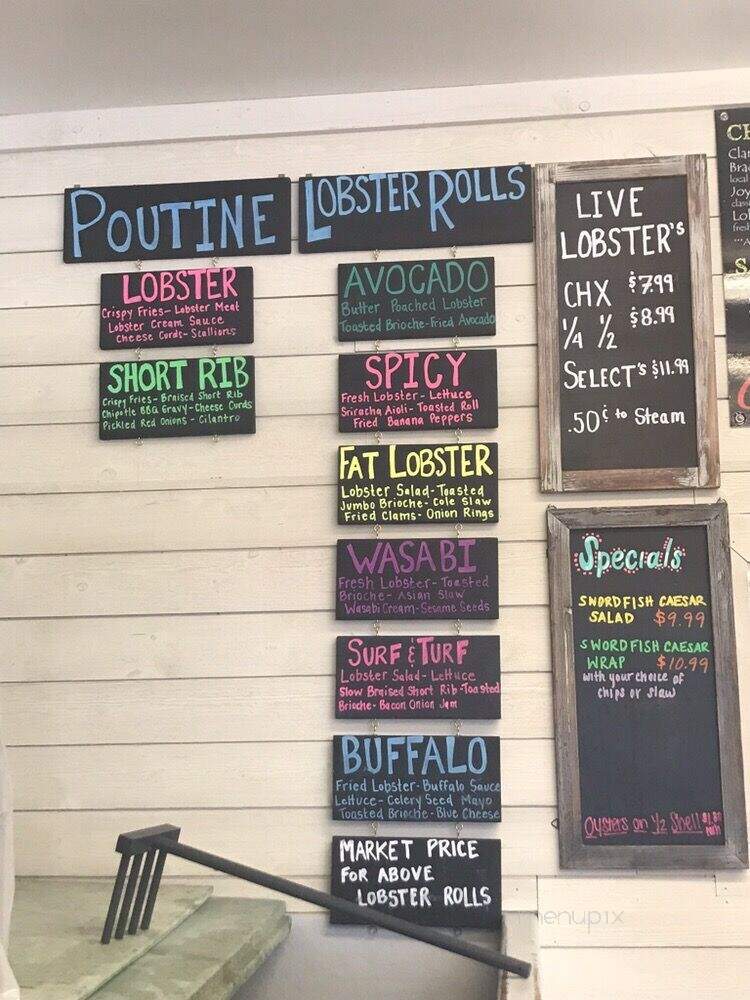 POUTINE
LOBSTER
Crispy Fries- Lobster Meat
Lobster Cream Sauce
Cheese Curds- Scallions
SHORT RIB
Crispy Fries- Braised Short Rib
Chipotle BBQ Gravy- Cheese Curds
Pickled Red Onions - Cilantro
LOBSTER ROLLS
AVOCADO
Butter Poached Lobster
Toasted Brioche-Fried Avocado
SPICY
Fresh Lobster- Lettuce
Sriracha Aioli- Toasted Roll
Fried Banana Peppers
FAT LOBSTER
Lobster Salad-Toasted
Jumbo Brioche- Cole Slaw
Fried Clams- Onion Rings
WASABI
Fresh Lobster- Toasted
Brioche- Asian Slaw
Wasabi Cream-Sesame Seeds
SURF & TURF
Lobster Salad- Lettuce
Slow Braised Short Rib-Toasted
Brioche- Bacon Onion Jam
BUFFALO
Fried Lobster-Buffalo Sauce
Lettuce- Celery Seed Mayo
Toasted Brioche-Blue Cheese
MARKET PRICE
FOR ABOVE
LOBSTER ROLLS
LIVE
LOBSTER'S
CHX $7.99
1/4 1/2 $8.99
SELECT'S $11.99
.50¢ to Steam
Specials
SWORDFISH CAESAR
SALAD $9.99
SWORDFISH CAESAR
WRAP $10.99
with your choice of
chips or slaw
Oysters on 1/2 Shell
menupix